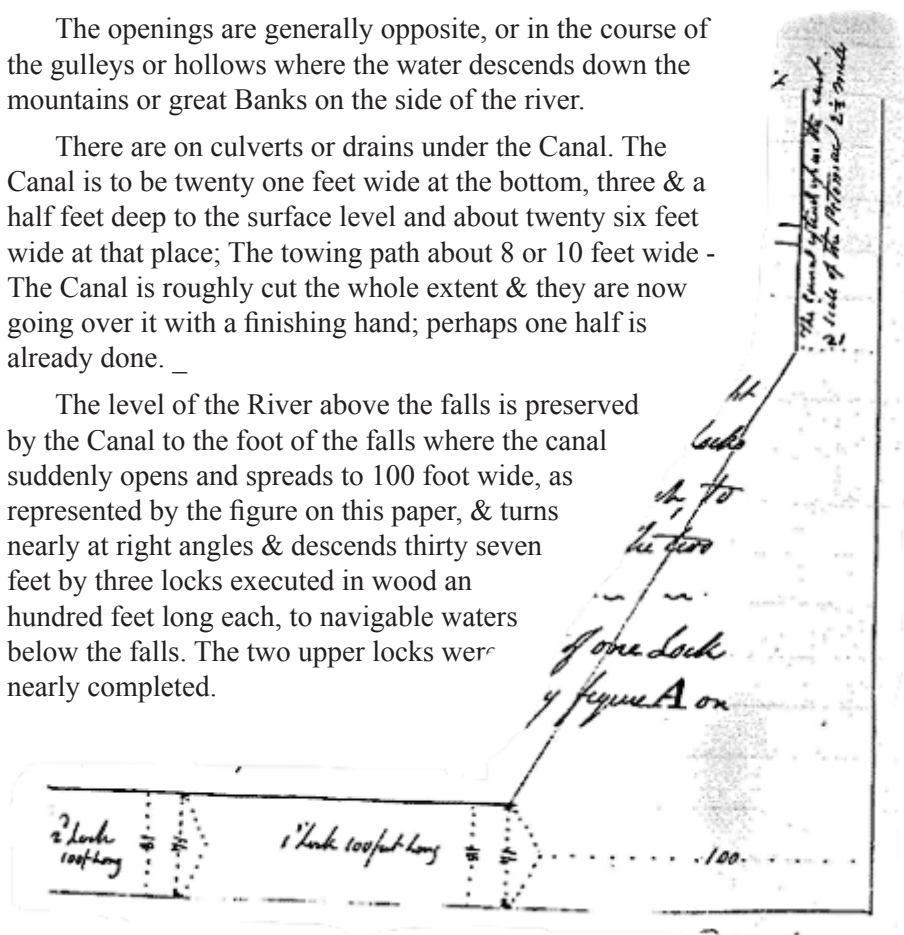 The openings are generally opposite, or in the course of
the gulleys or hollows where the water descends down the
mountains or great Banks on the side of the river.
There are on culverts or drains under the Canal. The
Canal is to be twenty one feet wide at the bottom, three & a
half feet deep to the surface level and about twenty six feet
wide at that place; The towing path about 8 or 10 feet wide -
The Canal is roughly cut the whole extent & they are now
going over it with a finishing hand; perhaps one half is
already done. _
The level of the River above the falls is preserved
by the Canal to the foot of the falls where the canal
suddenly opens and spreads to 100 foot wide, as
represented by the figure on this paper, & turns
nearly at right angles & descends thirty seven
feet by three locks executed in wood an
hundred feet long each, to navigable waters
below the falls. The two upper locks were
nearly completed.
side of the Potomac 2½ mile
21
ht
locks
to
the two
of one Lock
y figure A on
2d Lock
100f long
18
1st Lock 100 feet long
18
100